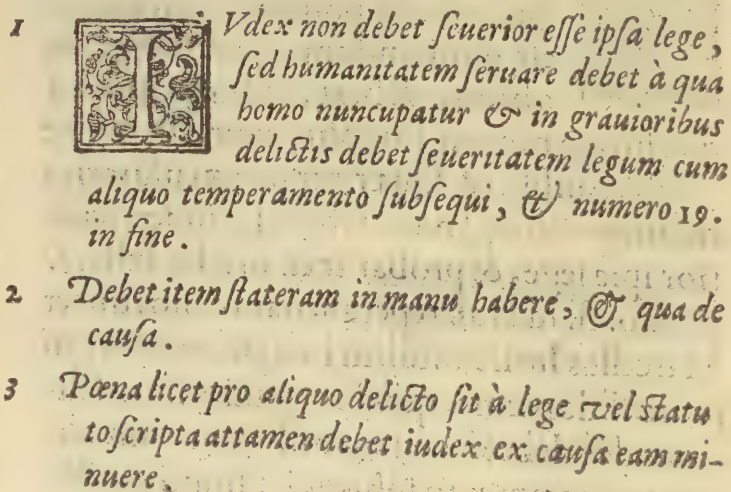 1 IVdex non debet ſeuerior eſſe ipſa lege,
ſed humanitatem ſeruare debet à qua
homo nuncupatur & in grauioribus
delictis debet ſeueritatem legum cum
aliquo temperamento ſubſequi, & numero 19.
in fine.
2 Debet item ſtateram in manu habere, & qua de
cauſa.
3 Pœna licet pro aliquo delicto ſit à lege vel ſtatu
to ſcripta attamen debet iudex ex cauſa eam mi-
nuere.